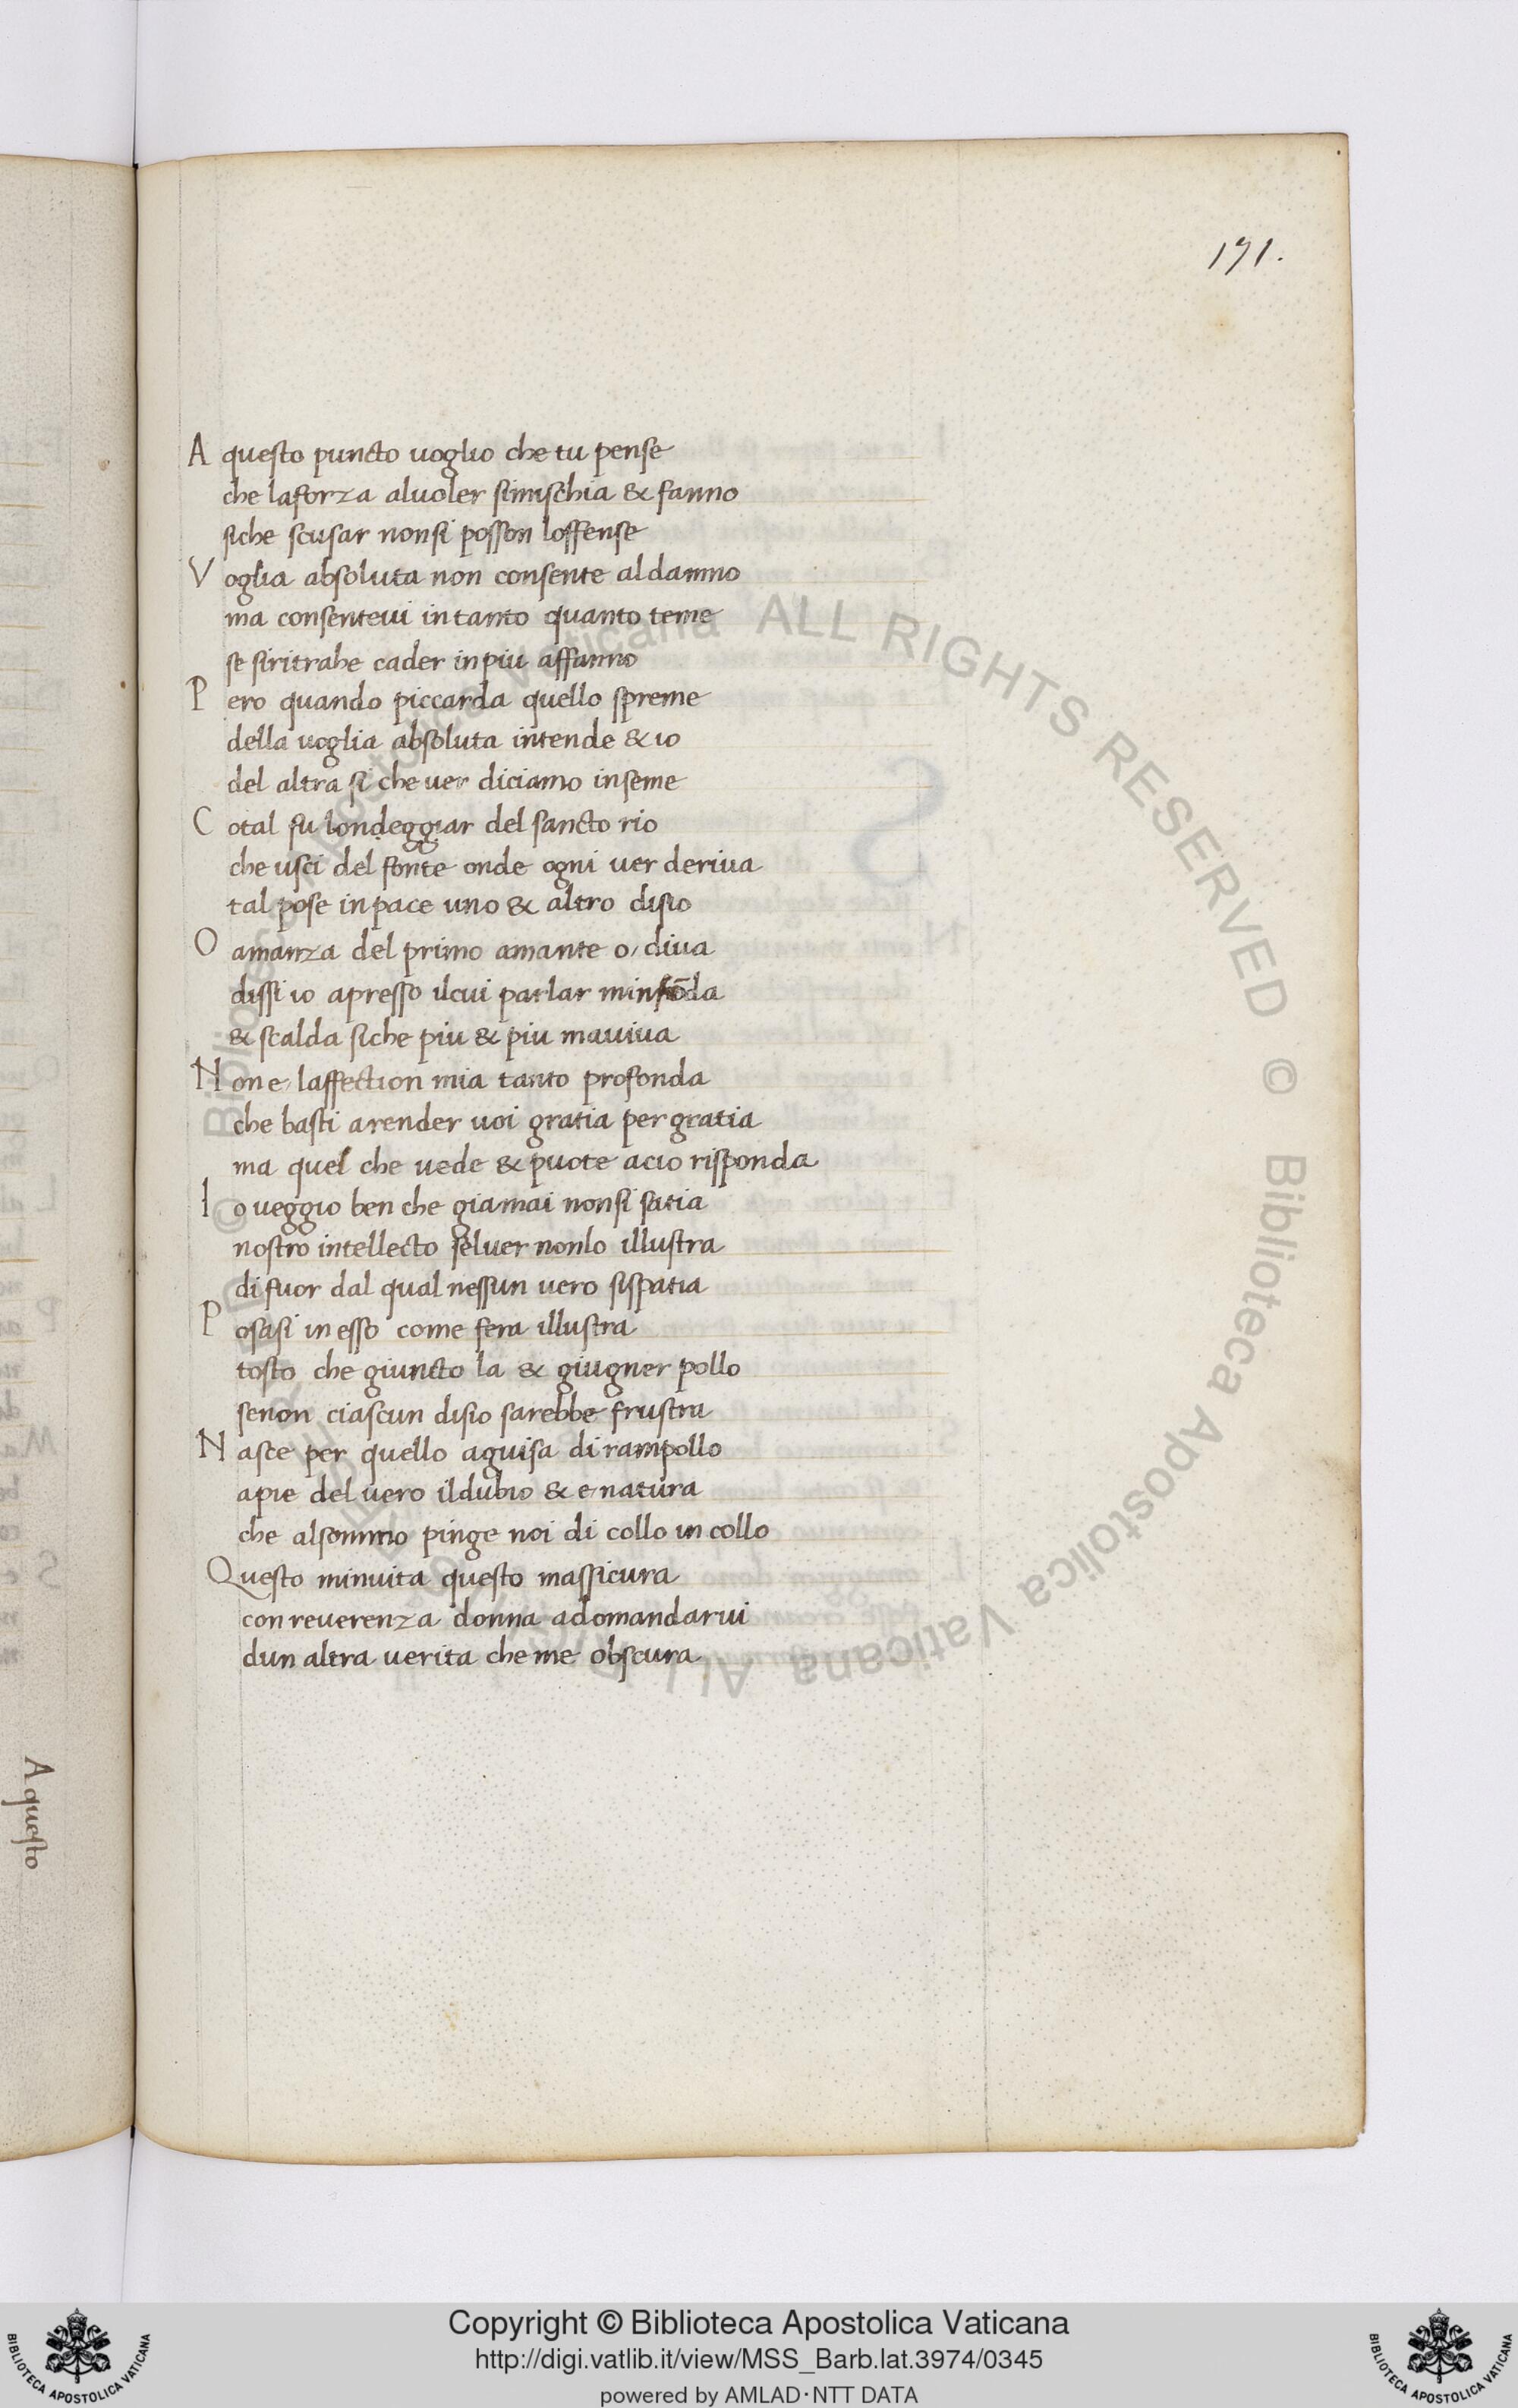 171.
A questo puncto uoglio che tu pense
che laforza aluoler simischia & fanno
siche scusar nonsi posson loffense
V oglia absoluta non consente aldamno
ma consenteui in tanto quanto teme
se siritrahe cader inpiu affanno
P ero quando piccarda quello spreme
della uoglia absoluta intende & io
del altra si che uer diciamo inseme
C otal fu londeggiar del sancto rio
che usci del fonte onde ogni uer deriua
tal pose inpace uno & altro disio
O amanza del primo amante o, diua
dissi io apresso ilcui parlar minfōda
& scalda siche piu & piu mauiua
N on e, laffection mia tanto profonda
che basti arender uoi gratia per gratia
ma quel che uede & puote acio risponda
I o ueggio ben che giamai nonsi satia
nostro intellecto seluer nonlo illustra
di fuor dal qual nessun uero sispatia
P osasi in esso come fera illustra
tosto che giuncto la & giugner pollo
senon ciascun disio sarebbe frustra
N asce per quello aguisa di rampollo
apie del uero ildubio & e, natura
che alsommo pinge noi di collo in collo
Questo minuita questo massicura
con reuerenza donna adomandarui
dun altra uerita che me obscura
A questo
© Biblioteca Apostolica Vaticana ALL RIGHTS RESERVED © Biblioteca Apostolica Vaticana ALL RIGHTS RESERVED
Copyright © Biblioteca Apostolica Vaticana
http://digi.vatlib.it/view/MSS_Barb.lat.3974/0345
powered by AMLAD·NTT DATA
BIBLIOTECA APOSTOLICA VATICANA
BIBLIOTECA APOSTOLICA VATICANA